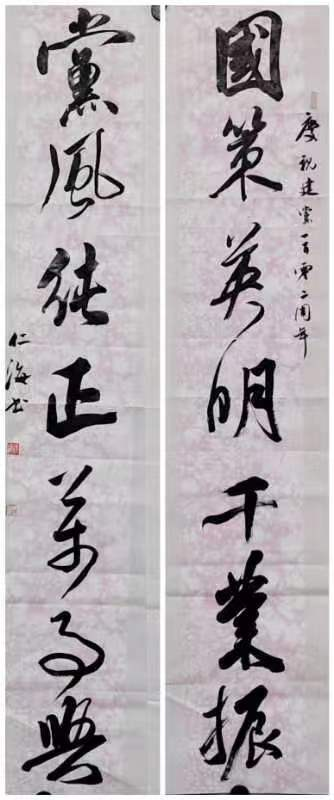 國策英明千業振
慶祝建黨一百零二周年
黨風純正萬事興
仁海书